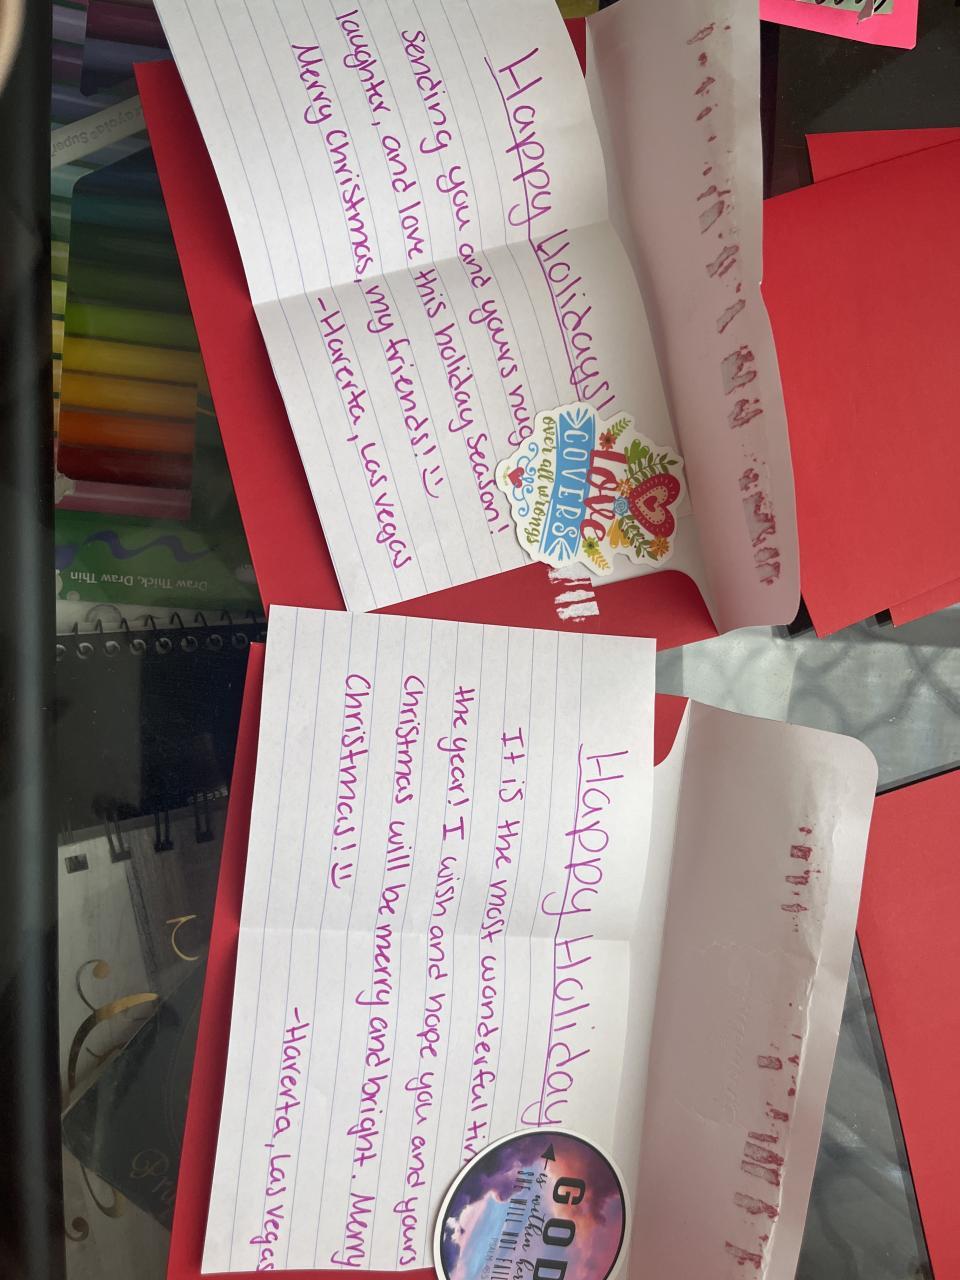 Happy Holidays!
Sending you and yours hug
laughter, and love this holiday season!
Merry Christmas, my friends! :)
-Harerta, Las Vegas
Love
COVERS
over all wrongs
Happy Holiday
It is the most wonderful tim
the year! I wish and hope you and yours
Christmas will be merry and bright. Merry
Christmas! :)
-Harerta, Las Vegas
GOD
is within her
SHE WILL NOT FALL
Draw Thick, Draw Thin
Crayola Super